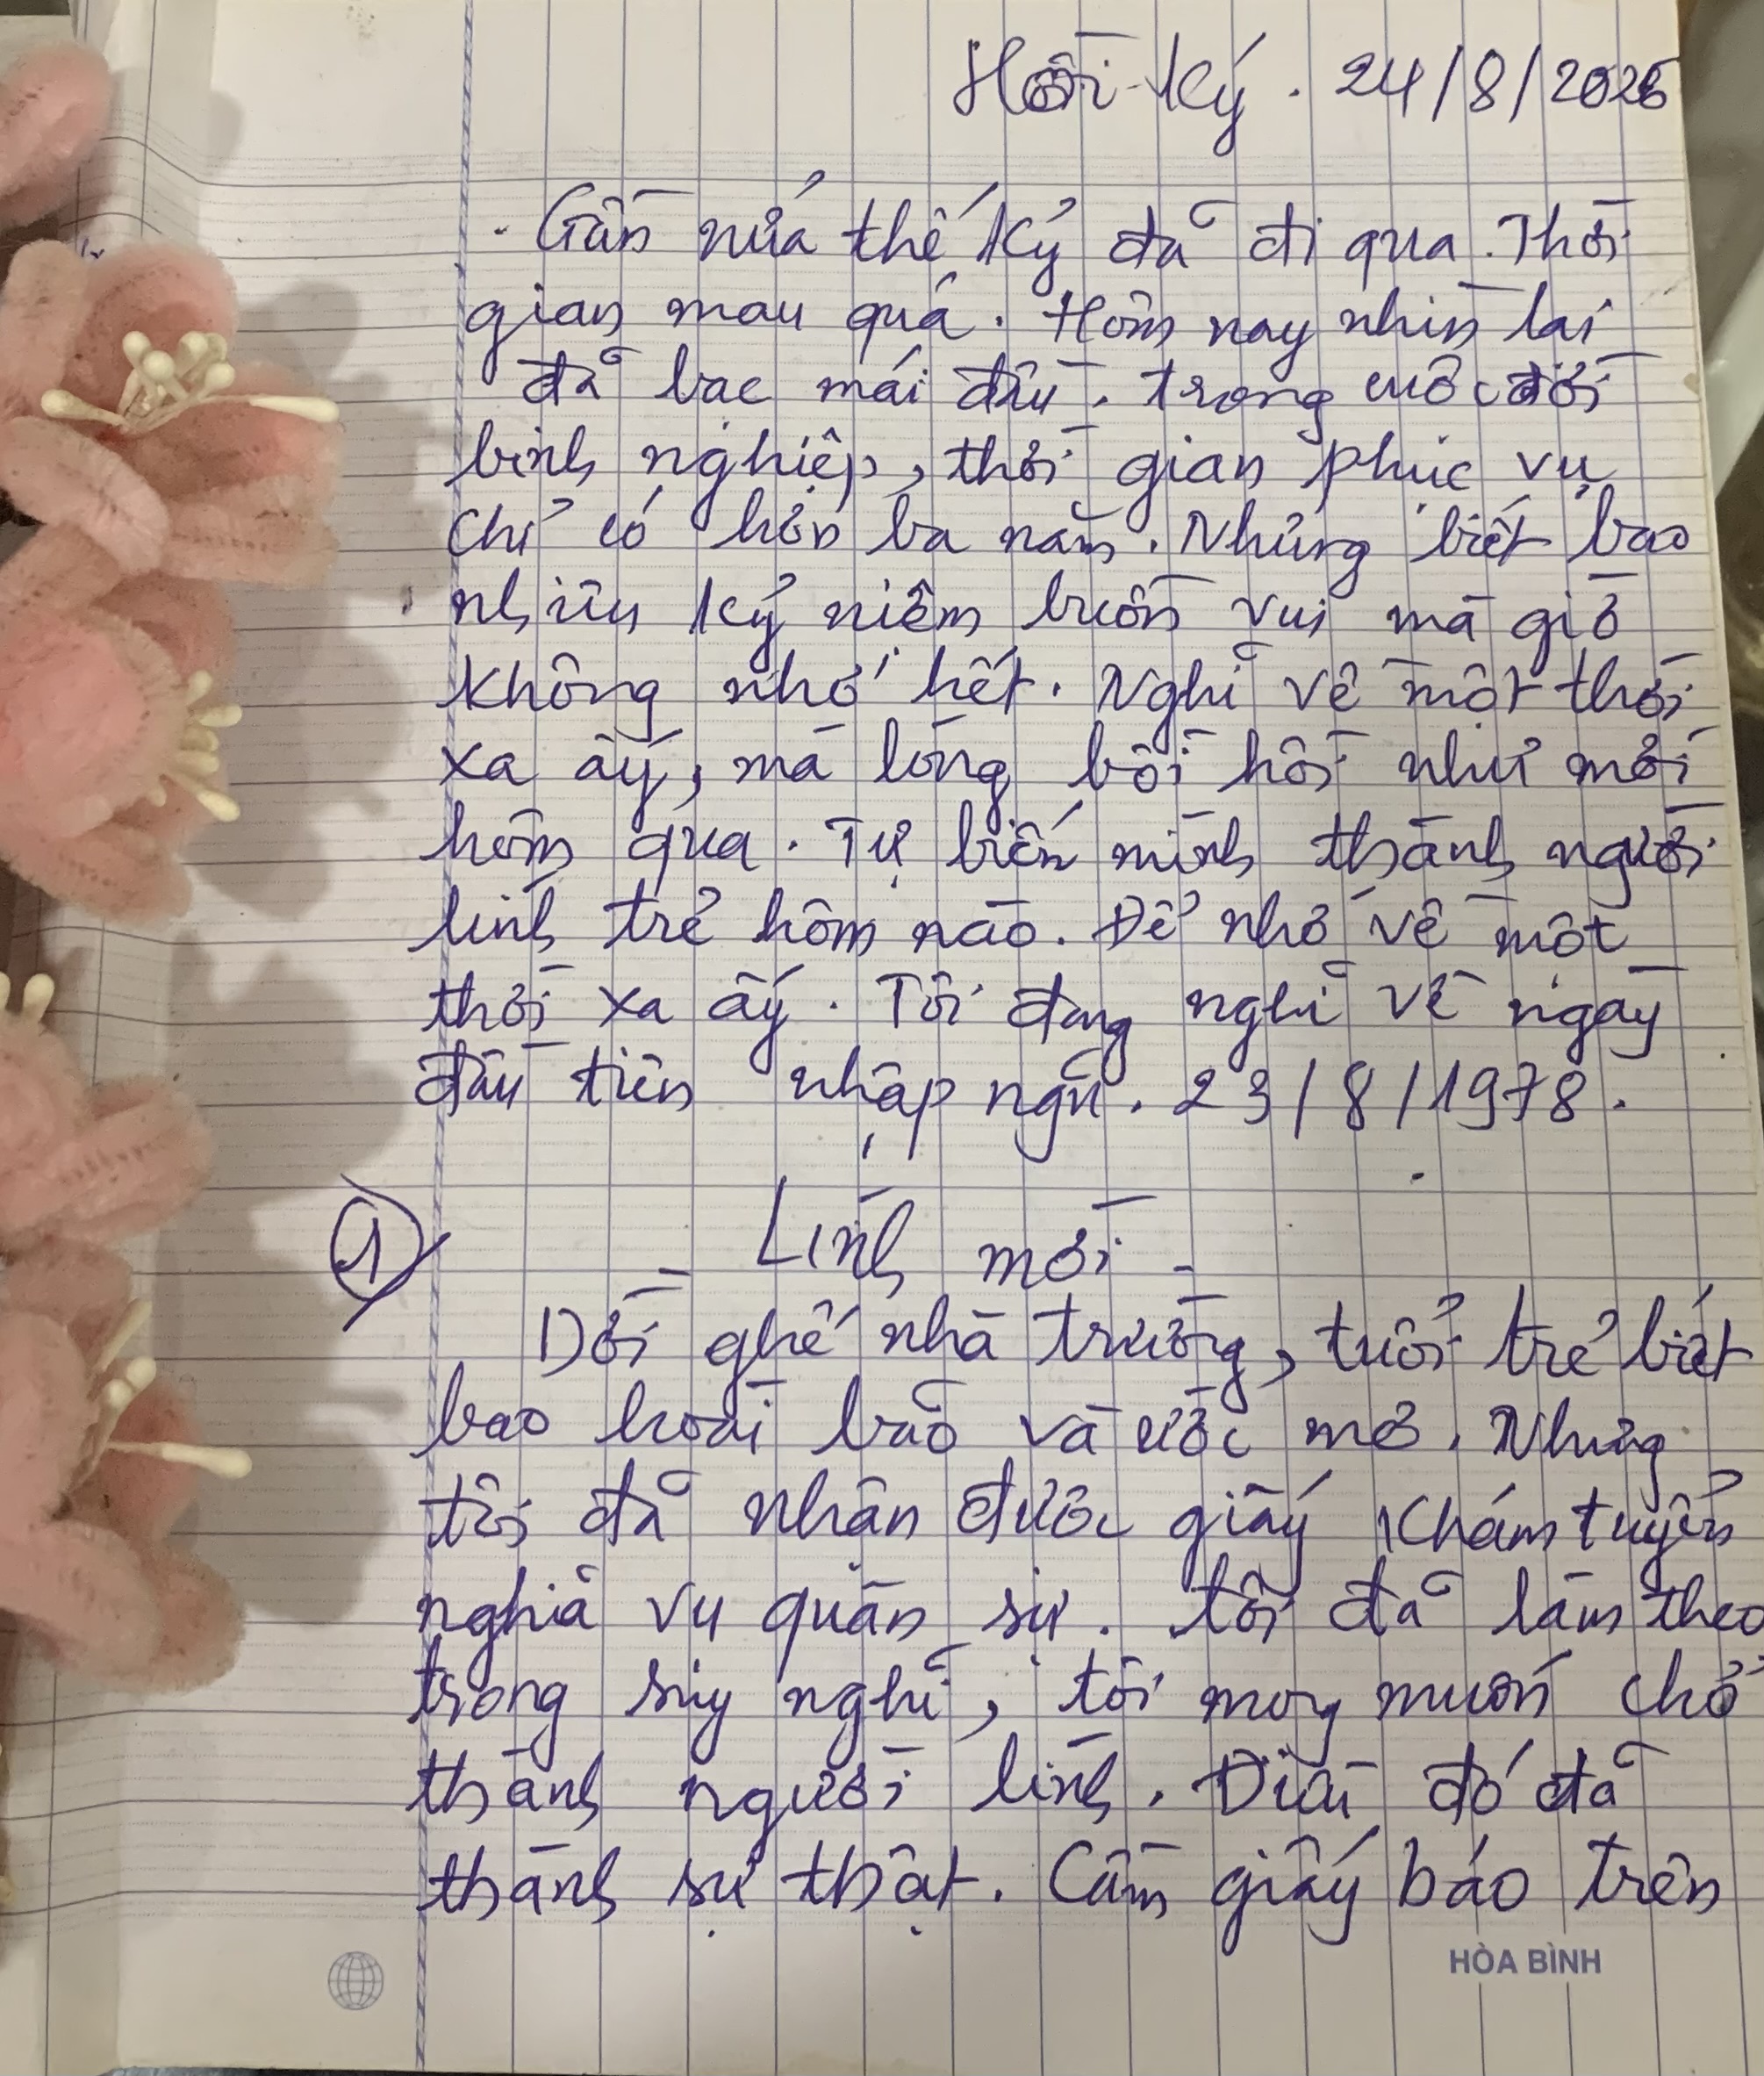 Hồi Ký. 24/8/2025
. Gần nửa thế kỷ đã đi qua. Thời
gian mau quá. Hôm nay nhìn lại
đã bạc mái đầu. trong cuộc đời
binh nghiệp, thời gian phục vụ
chỉ có hơn ba năm. Nhưng biết bao
nhiêu kỷ niệm buồn vui mà giờ
không nhớ hết. Nghĩ về một thời
xa ấy, mà lòng bồi hồi như mới
hôm qua. Tự biến mình thành người
lính trẻ hôm nào. Để nhớ về một
thời xa ấy. Tôi đang nghĩ về ngày
đầu tiên nhập ngũ. 23/8/1978.
① - Lính mới -
Dời ghế nhà trường, tuổi trẻ biết
bao hoài bão và ước mơ. Nhưng
tôi đã nhận được giấy khám tuyển
nghĩa vụ quân sự. tôi đã làm theo
trong suy nghĩ, tôi mong muốn chở
thành người lính. Điều đó đã
thành sự thật. Cầm giấy báo trên
HÒA BÌNH